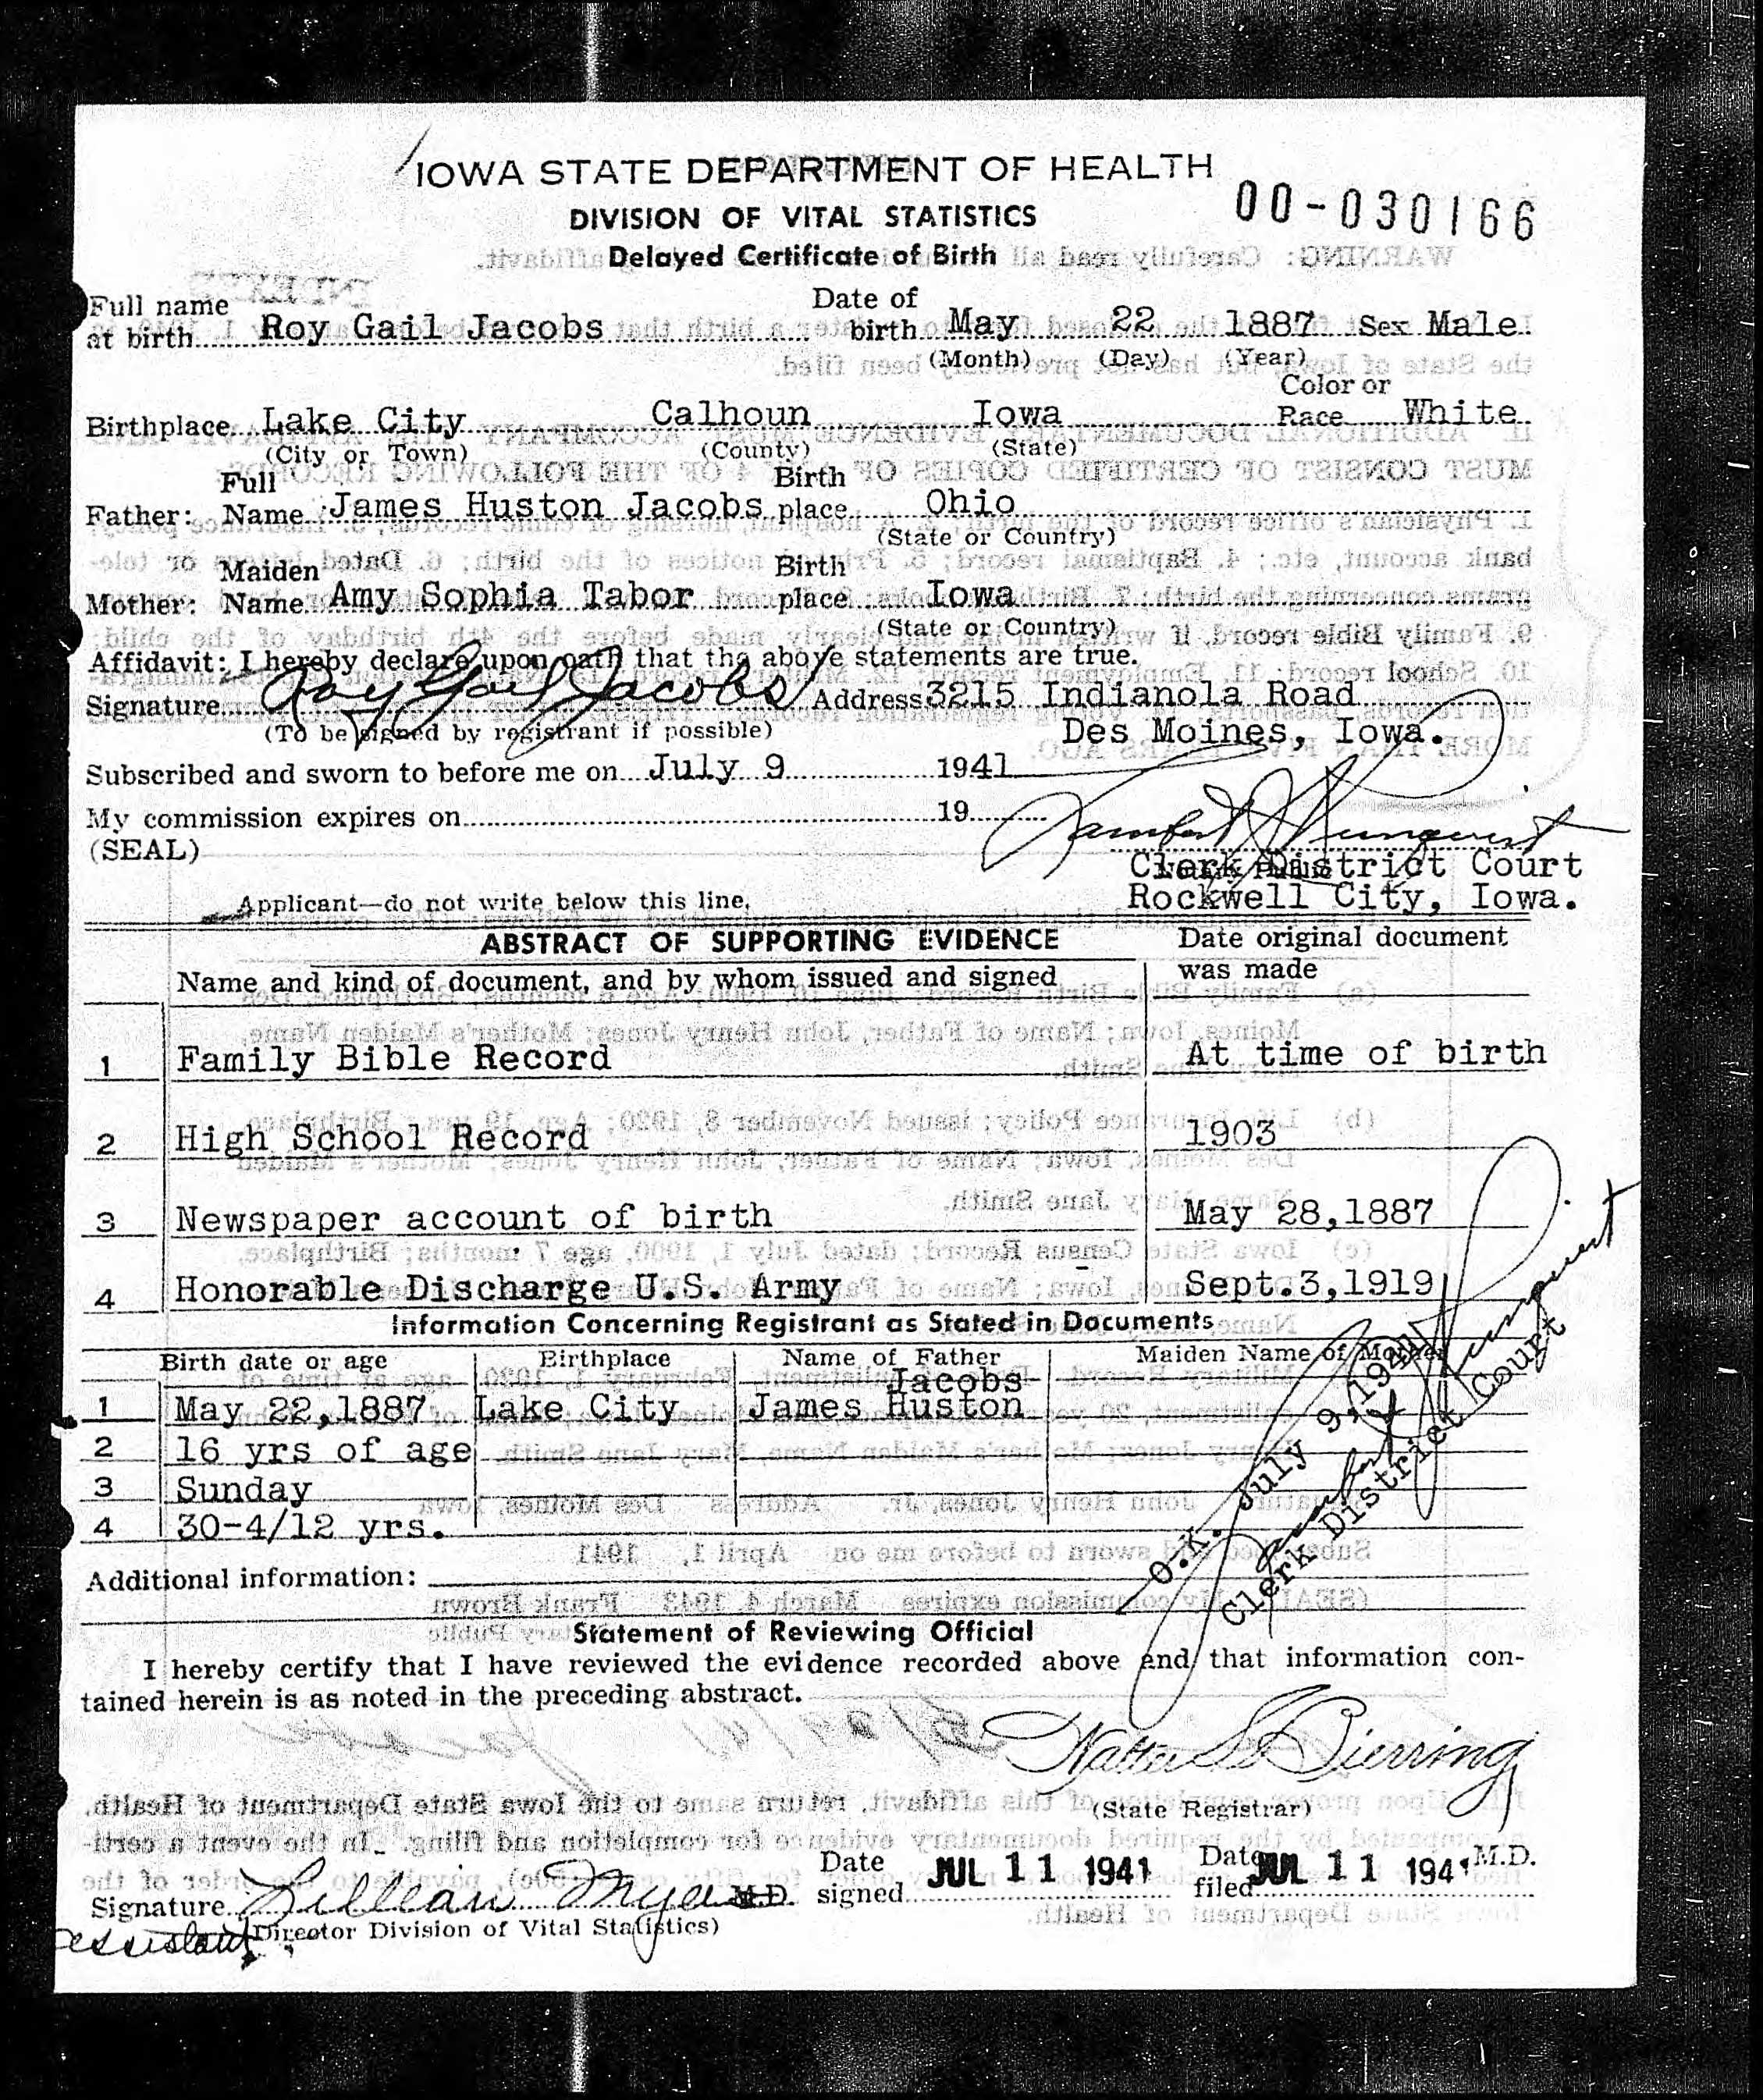 IOWA STATE DEPARTMENT OF HEALTH
00-030166
DIVISION OF VITAL STATISTICS
Delayed Certificate of Birth
Full name at birth Roy Gail Jacobs Date of birth May 22 1887 Sex Male
(Month) (Day) (Year)
Birthplace Lake City Calhoun Iowa Color or Race White
(City or Town) (County) (State)
Father: Full Name James Huston Jacobs Birth place Ohio
(State or Country)
Mother: Maiden Name Amy Sophia Tabor Birth place Iowa
(State or Country)
Affidavit: I hereby declare upon oath that the above statements are true.
Signature Roy Gail Jacobs Address 3215 Indianola Road
(To be signed by registrant if possible) Des Moines, Iowa.
Subscribed and sworn to before me on July 9 1941
My commission expires on 19
(SEAL)
Clerk District Court
Rockwell City, Iowa.
Applicant—do not write below this line.
ABSTRACT OF SUPPORTING EVIDENCE
Name and kind of document, and by whom issued and signed
Date original document was made
1 Family Bible Record At time of birth
2 High School Record 1903
3 Newspaper account of birth May 28,1887
4 Honorable Discharge U.S. Army Sept.3,1919
Information Concerning Registrant as Stated in Documents
Birth date or age Birthplace Name of Father Maiden Name of Mother
1 May 22,1887 Lake City James Huston Jacobs
2 16 yrs of age
3 Sunday
4 30-4/12 yrs.
O.K. July 9,1941
Clerk District Court
Additional information:
Statement of Reviewing Official
I hereby certify that I have reviewed the evidence recorded above and that information con-
tained herein is as noted in the preceding abstract.
Walter L. Bierring
(State Registrar)
M.D.
Signature Lillian Myers M.D. Date signed JUL 11 1941 Date filed JUL 11 1941
assistant Director Division of Vital Statistics)